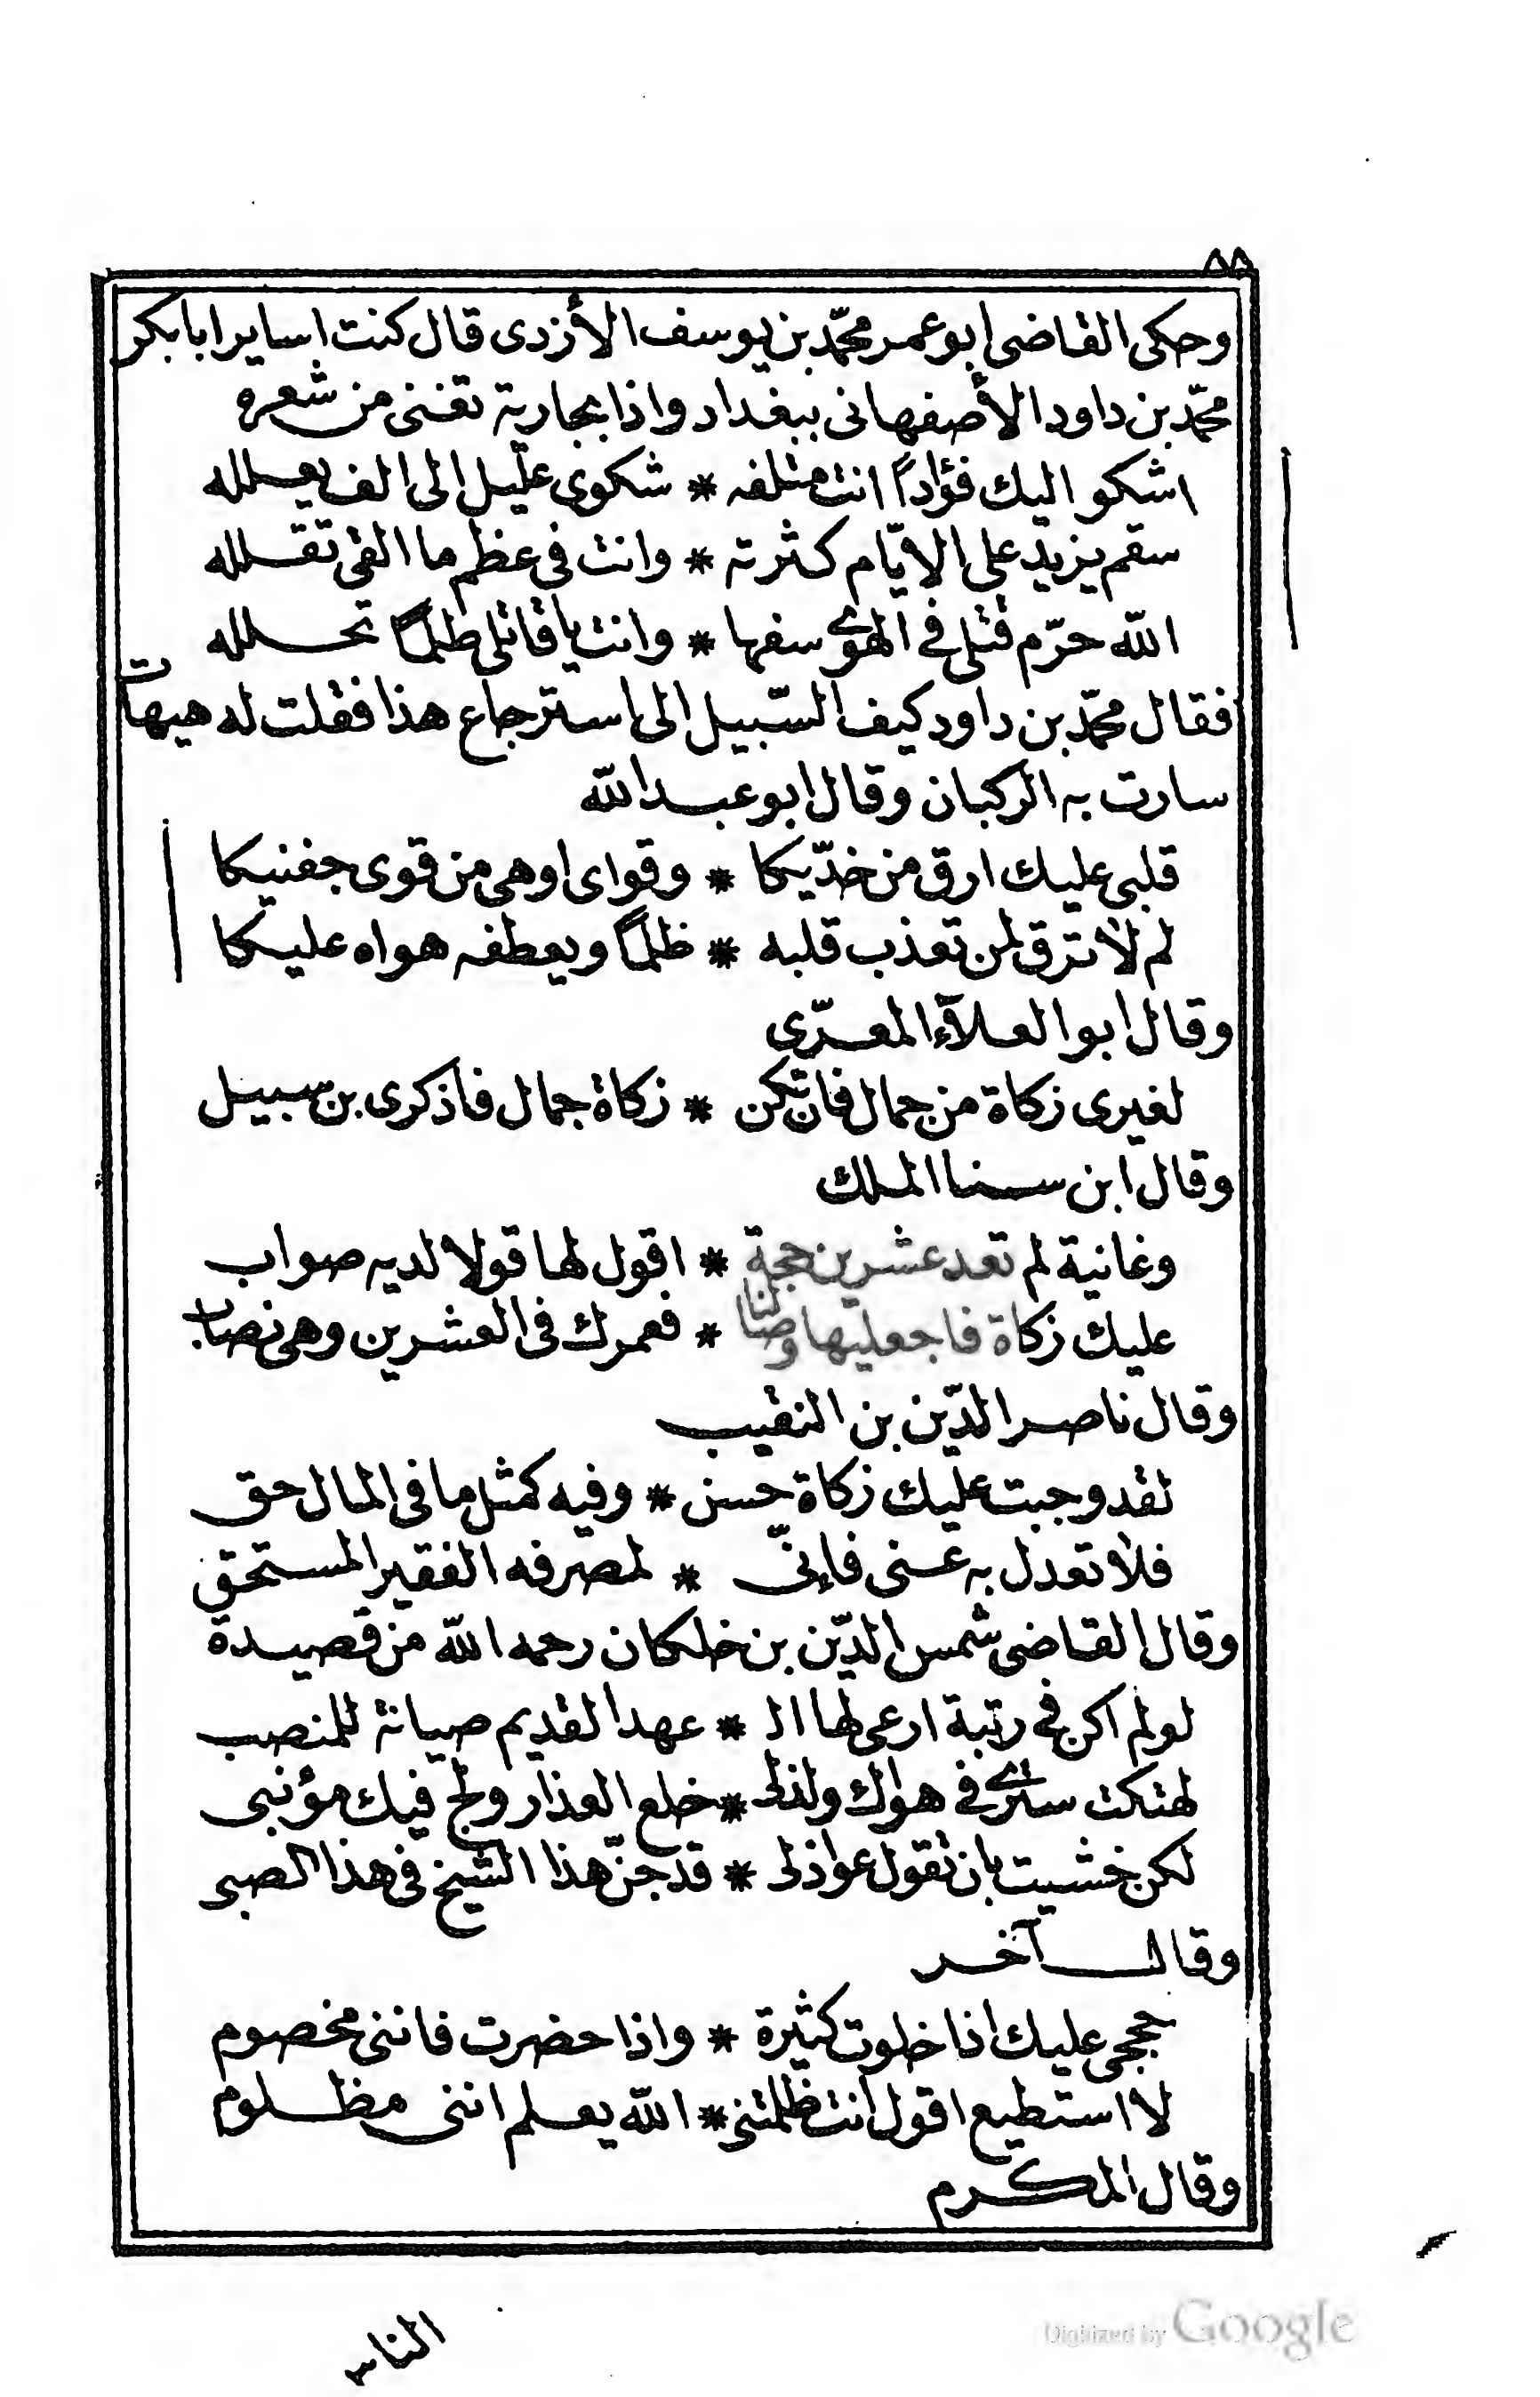 ٨٨
وحكى القاضى ابو عمر محمّد بن يوسف الأزدى قال كنت اساير ابا بكر
محمّد بن داود الأصفهانى ببغداد واذا بجارية تغنى من شعره
اشكو اليك فؤاداً انت متلفه * شكوى عليل الى الف يعلله
سقم يزيد على الايّام كثرته * وانت فى عظم ما القى تقلله
الله حرّم قتلى فى الهوى سفها * وانت يا قاتلى ظلماً تحلله
فقال محمّد بن داود كيف السّبيل الى استرجاع هذا فقلت له هيهات
سارت به الركبان وقال ابو عبد الله
قلبى عليك ارق من خدّيكا * وقواى اوهى من قوى جفنيكا
لم لا ترق لمن تعذب قلبه * ظلماً ويعطفه هواه عليكا
وقال ابو العلآء المعرّى
لغيرى زكاة من جمال فان تكن * زكاة جمال فاذكرى بن سبيل
وقال ابن سنا الملك
وغانية لم تعد عشرين حجة * اقول لها قولا لديه صواب
عليك زكاة فاجعليها وصالنا * فعمرك فى العشرين وهى نصاب
وقال ناصر الدّين بن النقيب
لقد وجبت عليك زكاة حسن * وفيه كمثل ما فى المال حق
فلا تعدل به عنى فإنّى * لمصرفه الفقير المستحق
وقال القاضى شمس الدّين بن خلكان رحمه الله من قصيدة
لو لم اكن فى رتبة ارعى لها الـ * عهد القديم صيانة للمنصب
لهتكت سترى فى هواك ولذ لى * خلع العذار ولج فيك مؤنبى
لكن خشيت بان تقول عواذلى * قد جنّ هذا الشيخ فى هذا الصبى
وقال آخر
حججى عليك اذا خلوت كثيرة * واذا حضرت فاننى مخصوم
لا استطيع اقول انت ظلمتنى * الله يعلم اننى مظلوم
وقال المكرم
الناس
Digitized by Google